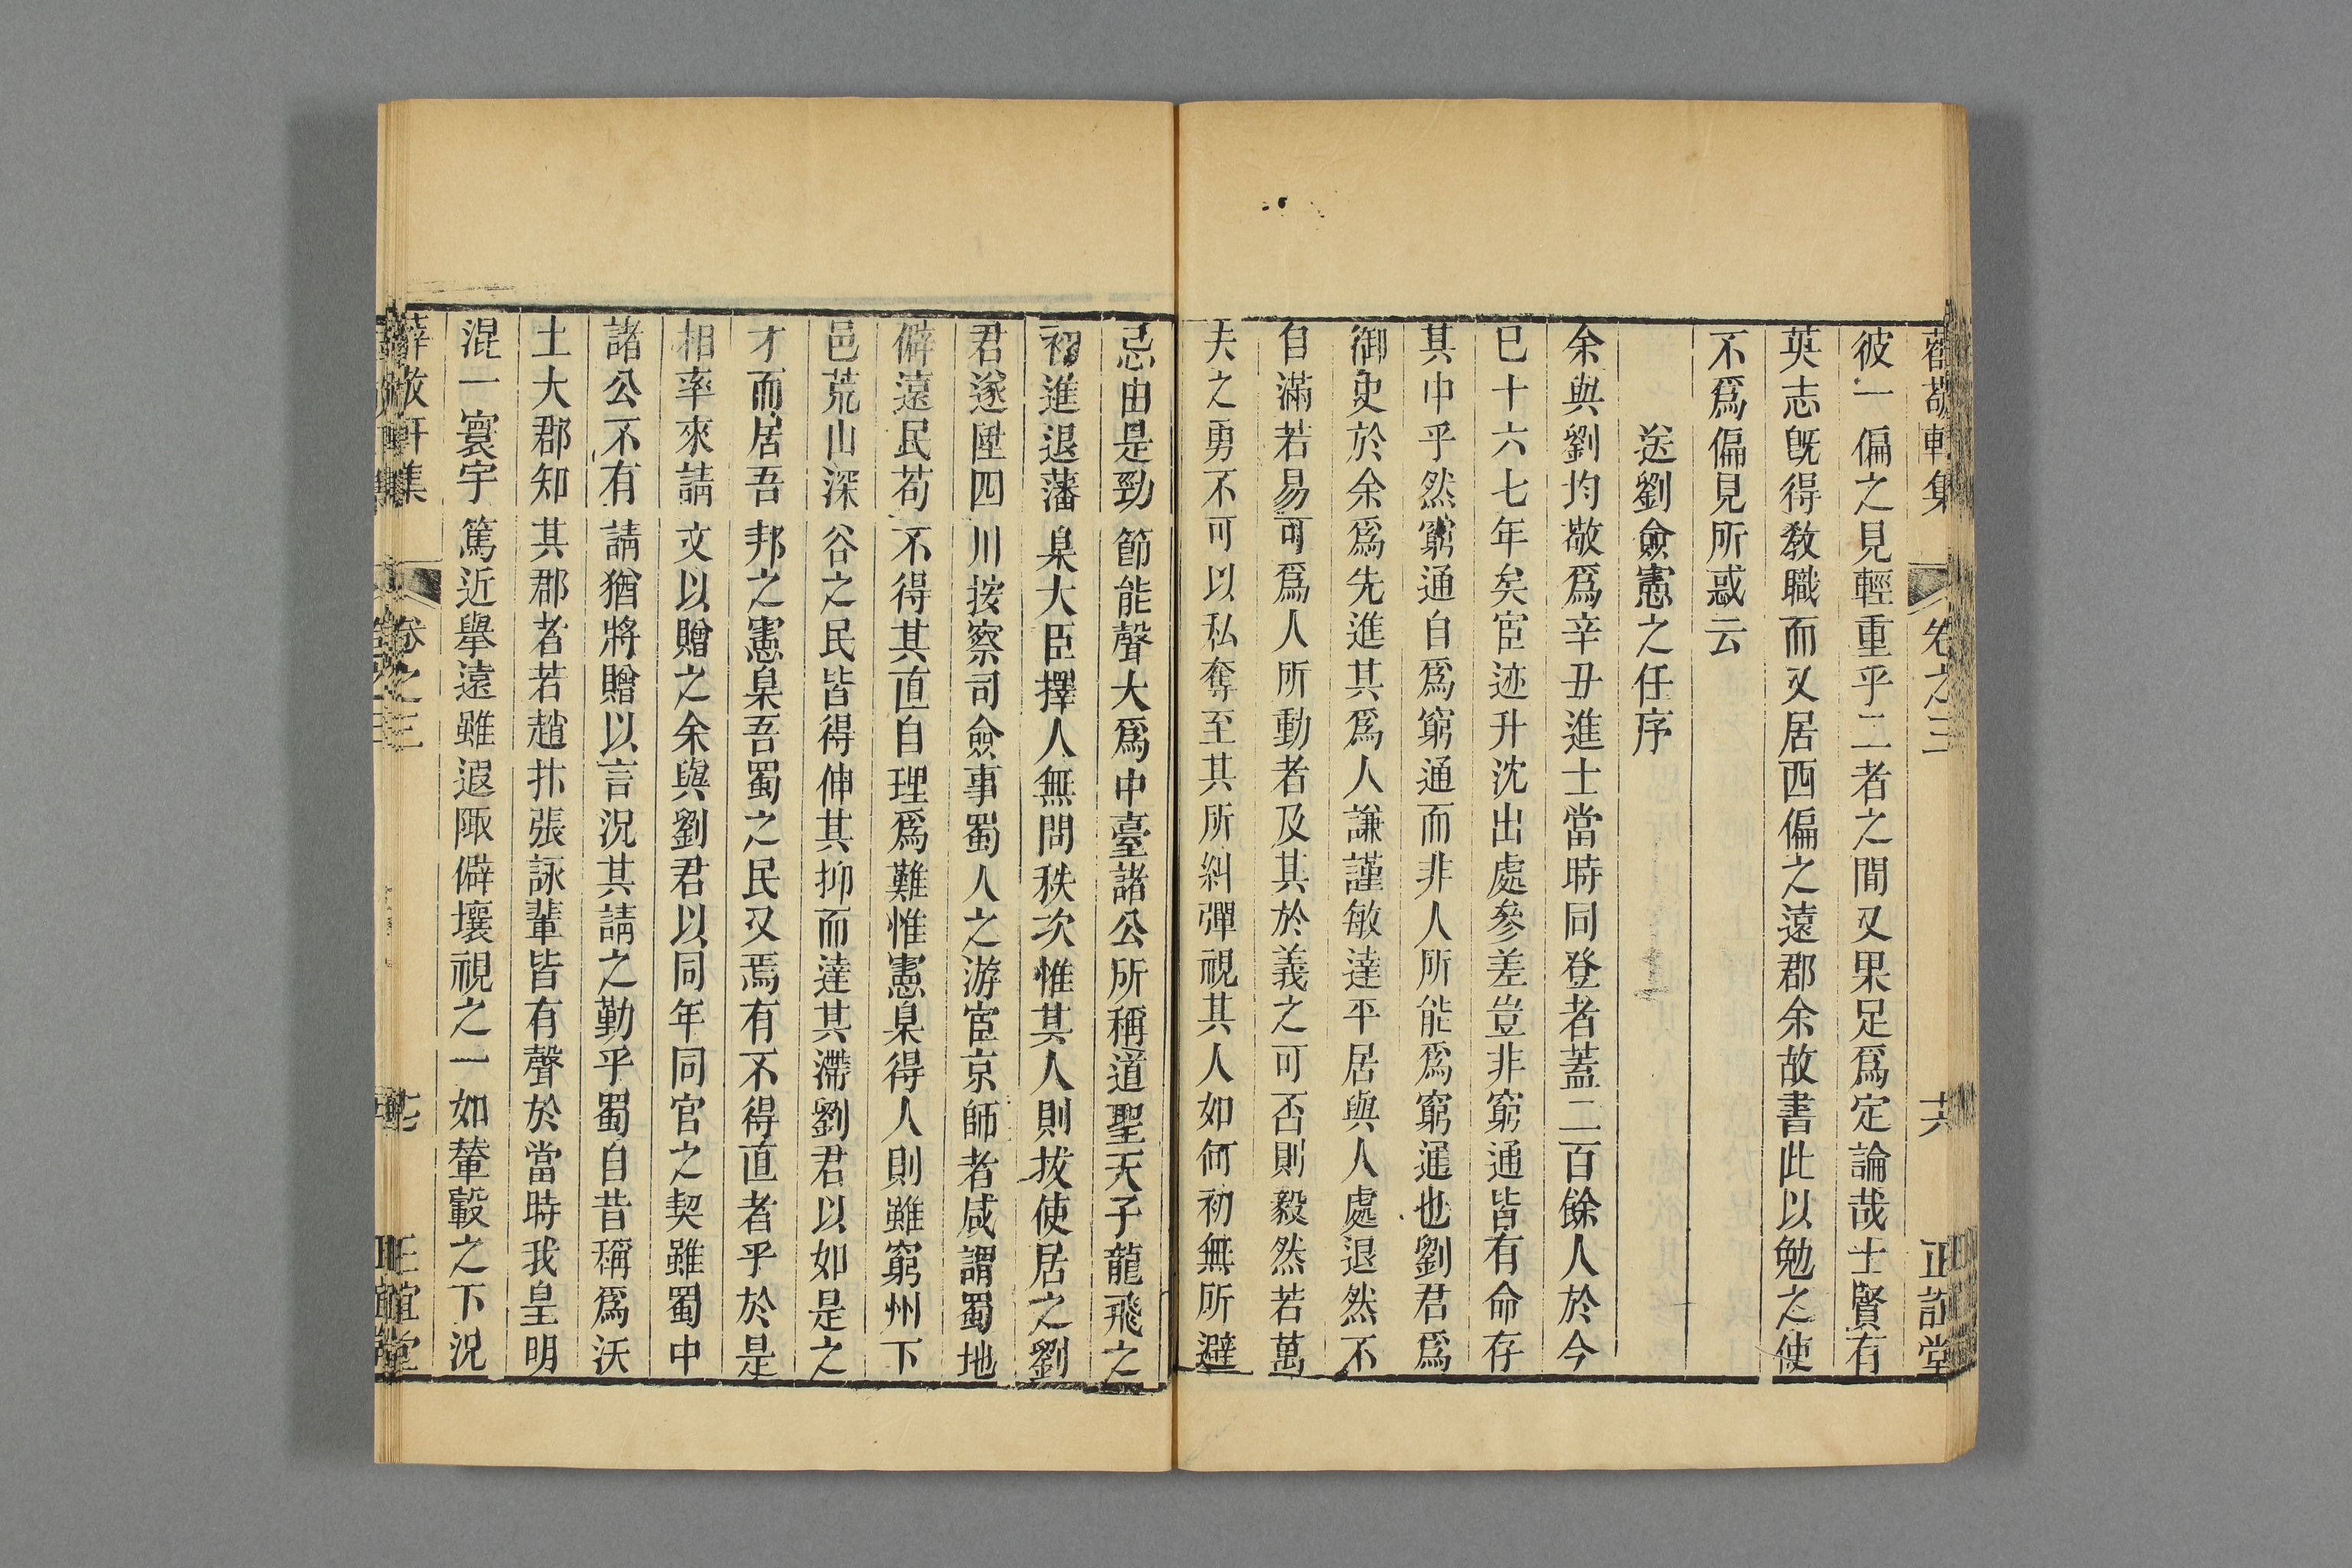 薛敬軒集 卷之三 十六 正誼堂
彼一偏之見輕重乎二者之間又果足爲定論哉士賢有
英志旣得敎職而又居西偏之遠郡余故書此以勉之使
不爲偏見所惑云
送劉僉憲之任序
余與劉均敬爲辛丑進士當時同登者蓋二百餘人於今
已十六七年矣宦迹升沈出處參差豈非窮通皆有命存
其中乎然窮通自爲窮通而非人所能爲窮通也劉君爲
御史於余爲先進其爲人謙謹敏達平居與人處退然不
自滿若易可爲人所動者及其於義之可否則毅然若萬
夫之勇不可以私奪至其所糾彈視其人如何初無所避
忌由是勁節能聲大爲中臺諸公所稱道聖天子龍飛之
初進退藩臬大臣擇人無問秩次惟其人則拔使居之劉
君遂陞四川按察司僉事蜀人之游宦京師者咸謂蜀地
僻遠民苟不得其直自理爲難惟憲臬得人則雖窮州下
邑荒山深谷之民皆得伸其抑而達其滯劉君以如是之
才而居吾邦之憲臬吾蜀之民又焉有不得直者乎於是
相率來請文以贈之余與劉君以同年同官之契雖蜀中
諸公不有請猶將贈以言況其請之勤乎蜀自昔稱爲沃
土大郡知其郡者若趙抃張詠輩皆有聲於當時我皇明
混一寰宇篤近舉遠雖遐陬僻壤視之一如輦轂之下況
薛敬軒集 卷之三 十七 正誼堂